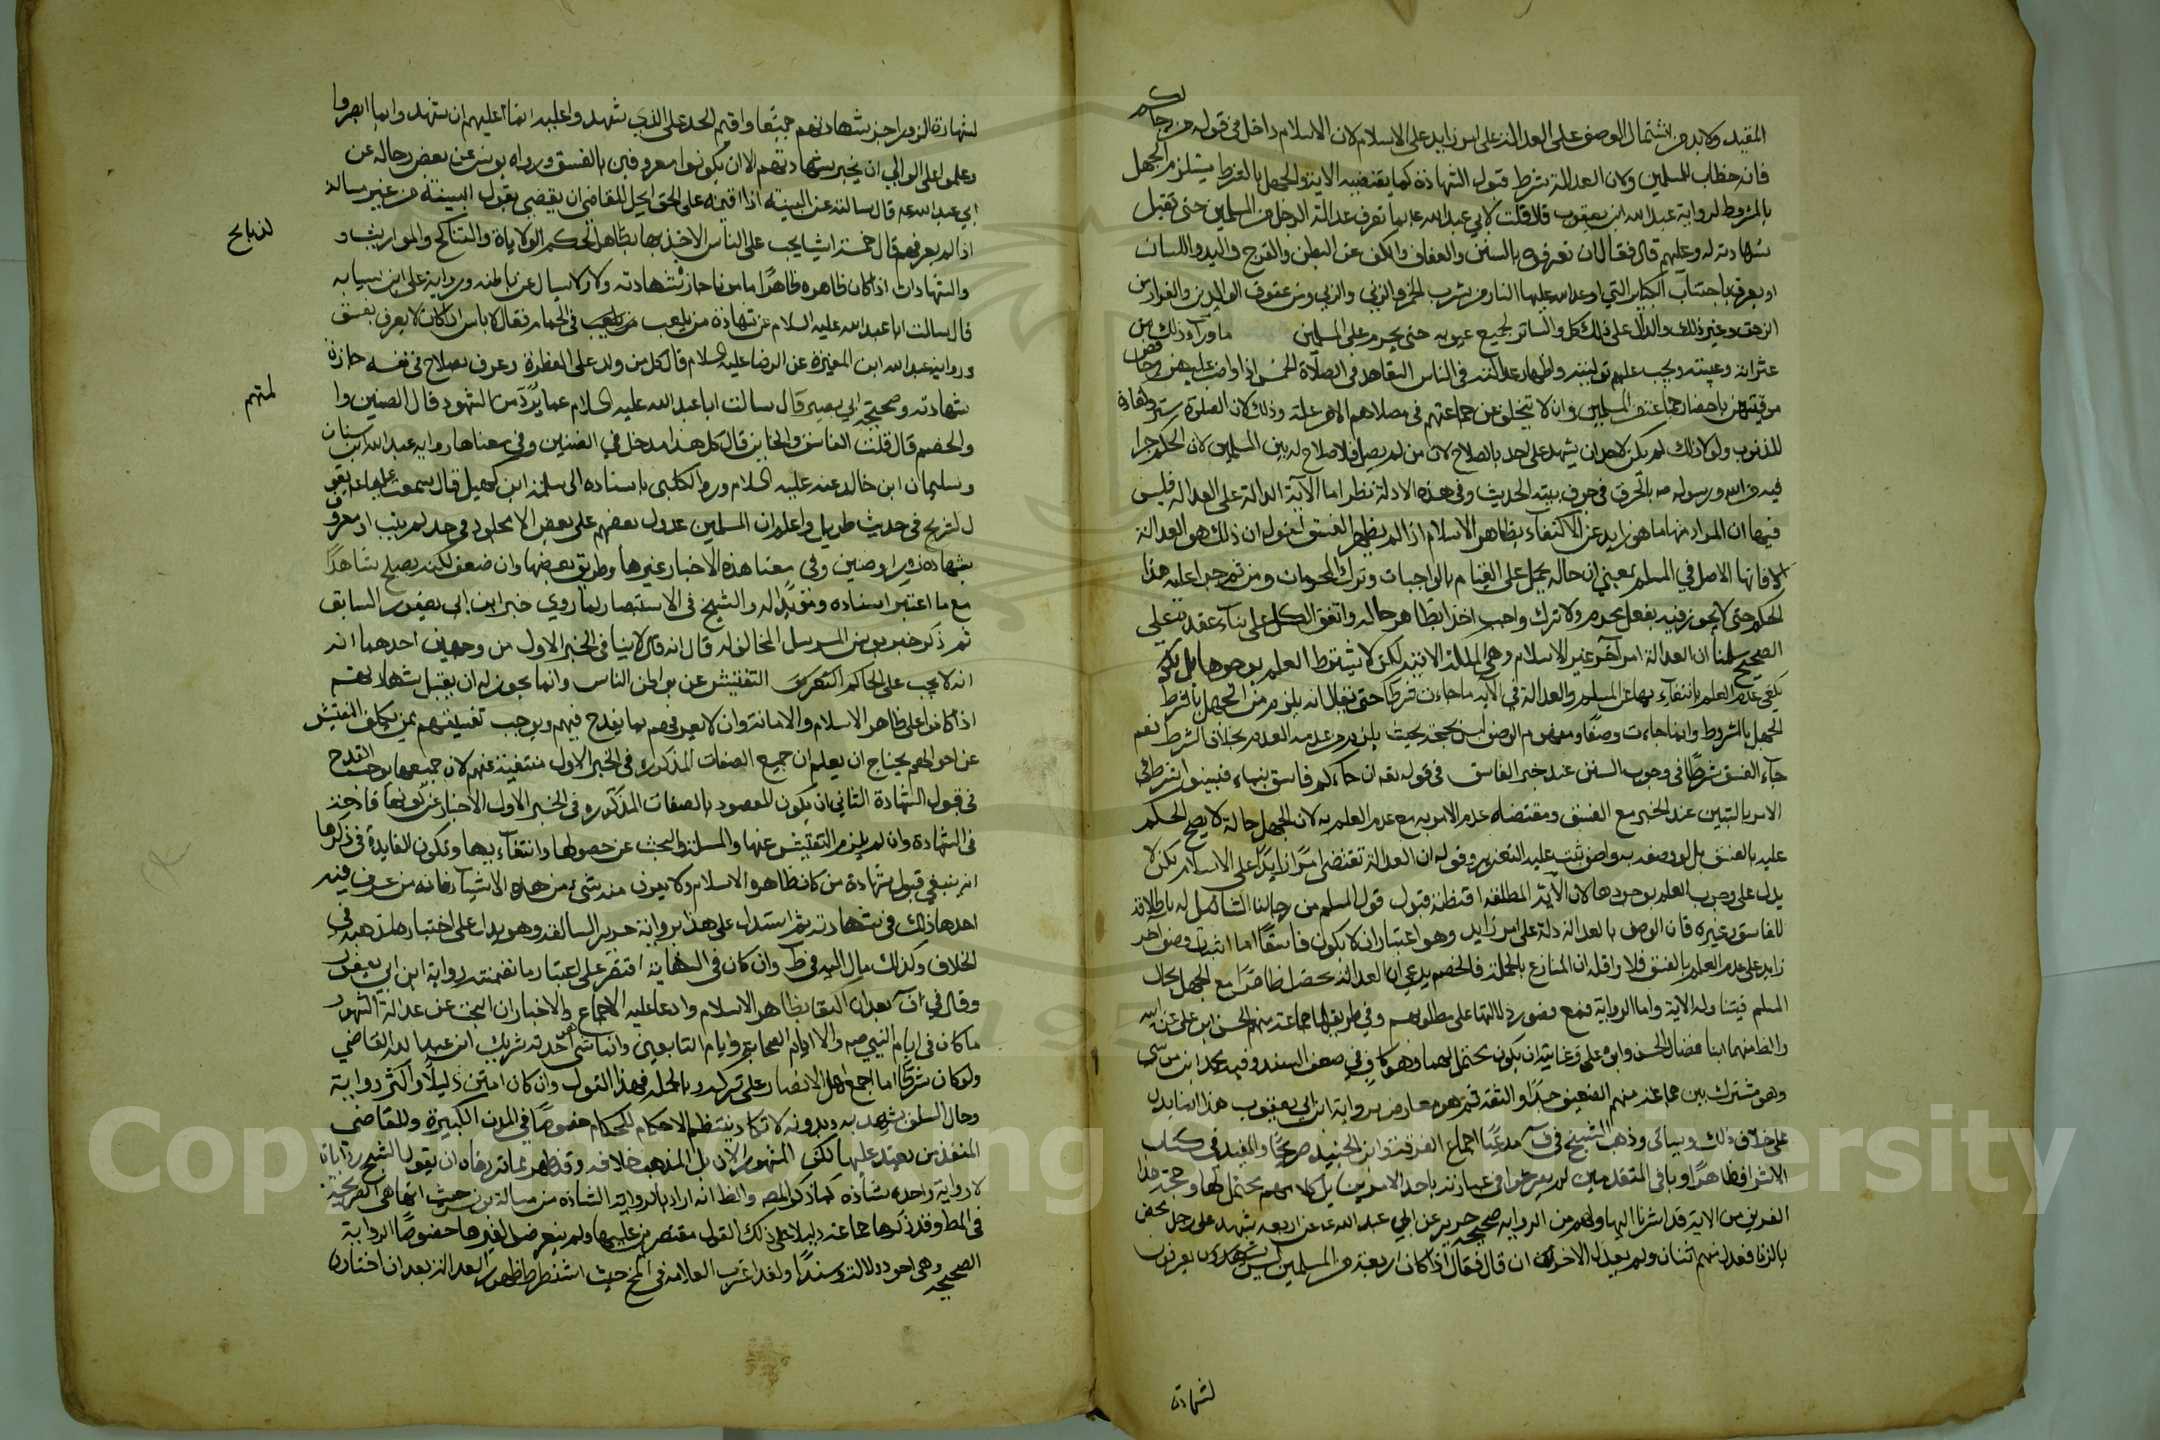 المقيد ولا بد من اشتمال الوصف على العدالة على امر زايد على الاسلام لان الاسلام داخل في قوله من رجالكم
فانه خطاب للمسلمين ولان العدالة شرط قبول الشهادة كما يقتضيه الاية والجهل بالشرط يستلزم الجهل
بالمشروط لرواية عبد الله ابن يعقوب قال قلت لابي عبد الله ع بما تعرف عدالة الرجل من المسلمين حتى تقبل
شهادته له وعليهم قال فقال ان تعرفوه بالستر والعفاف والكف عن البطن والفرج واليد واللسان
او يعرف باجتناب الكباير التي اوعد الله عليها النار من شرب الخمر والزنى والربى وعن عقوق الوالدين والفرار من
الزحف وغير ذلك والدال على ذلك كله والساتر لجميع عيوبه حتى يحرم على المسلمين ما ورآء ذلك من
عثراته وعيبته ويجب عليهم توليته واظهار عدالته في الناس التعاهد في الصلاة الخمس اذا واظب عليهن وحافظ
مواقيتهن باحضار جماعة من المسلمين وان لا يتخلف عن جماعتهم في مصلاهم الا من علة وذلك لان الصلوة ستر وكفارة
للذنوب ولولا ذلك لم يكن لاحد ان يشهد على احد بالصلاح لان من لم يصل فلا صلاح له بين المسلمين لان الحكم جرا
فيه من الله ورسوله ص بالحرق في جوف بيته الحديث وفي هذه الادلة نظر اما الآية الدالة على العدالة فليس
فيها ان المراد منها ما هو زايد عن الاكتفاء بظاهر الاسلام اذا لم يظهر الفسق فنقول ان ذلك هو العدالة
لانها الاصل في المسلم بمعنى ان حاله يحمل على القيام بالواجبات وترك المحرمات ومن ثم جرا عليه هذا
الحكم حتى لا يجوز رميه بفعل محرم ولا ترك واجب اخذا بظاهر حاله واتفق الكل على بناء عقده على
الصحيح سلمنا ان العدالة امر آخر غير الاسلام وهي الملكة الاتية لكن لا يشترط العلم بوجودها بل يكفي
يكفي عدم العلم بانتفاء بها عن المسلم والعدالة في الاية ما جاءت شرطا حتى يقال انه يلزم من الجهل بالشرط
الجهل بالمشروط وانما جاءت وصفا ومفهوم الوصف ليس بحجة بحيث يلزم من عدمه العدم بخلاف الشرط نعم
جآء الفسق شرطا في وجوب التبين عند خبر الفاسق في قوله تعه ان جاءكم فاسق بنباء فتبينوا شرط في
الامر بالتبين عند الخبر مع الفسق ومقتضاه عدم الامر به مع عدم العلم به لان الجهل حالة لا يصح الحكم
عليه بالفسق بل لو وصفه به واصف ثبت عليه التعزير وقوله ان العدالة تقتضي امرا زايدا على الاسلام لكن لا
يدل على وجوب العلم بوجودها لان الاية المطلقة اقتضت قبول قول المسلم من رجالنا الشامل له باطلاقه
للفاسق وغيره فان الوصف بالعدالة دلة على امر زايد وهو اعتبار ان لا يكون فاسقا اما اثبات وصف آخر
زايد على عدم العلم بالفسق فلا واقله ان المنازع بالجملة فالخصم يدعي ان العدالة تحصل ظاهرا مع الجهل بحال
المسلم فيتناوله الاية واما الرواية فمع قصور دلالتها على مطلوبهم وفي طريقها جماعة منهم الحسن ابن علي عن ابيه
والظ منهما ابنا فضال الحسن وابوه علي وغايته ان يكون محتمل لهما وهو كاف في ضعف السند وفيه محمد ابن موسى
وهو مشترك بين جماعة منهم الضعيف جدا والثقة ثم هو معارض برواية ابن ابي يعفور هذا انما يدل
على خلاف ذلك وسيأتي وذهب الشيخ في ف مدعيا اجماع الفرقة وابن الجنيد صريحا والمفيد في كتاب
الاشراف ظاهرا وباقي المتقدمين لم يصرحوا في عبارته باحد الامرين بل كلامهم يحتمل لها وحجة هذا
الفريق من الاية قد اشرنا اليها ولهم من الرواية صحيحة حريز عن ابي عبد الله ع عن اربعة شهدوا على رجل محصن
بالزنا فعدل منهم اثنان ولم يعدل الاخران ان قال فقال اذا كان اربعة من المسلمين ليس يعرفون
لشهادة
لشهادة الزور اجيز شهادتهم جميعا واقيم الحد على الذي شهدوا عليه انما عليهم ان يشهدوا بما ابصروا
وعلموا على الوالي ان يجيز شهادتهم الا ان يكونوا معروفين بالفسق ورواه يونس عن بعض رجاله عن
ابي عبد الله ع قال سالته عن البينة اذا اقيمة على الحق ايحل للقاضي ان يقضي بقول البينة من غير مسالة
اذا لم يعرفهم قال خمسة اشيا يجب على الناس الاخذ بها بظاهر الحكم الولاياة والتناكح والمواريث و
لذبايح
والشهادات اذا كان ظاهره ظاهرا مامونا جازت شهادته ولا يسال عن باطنه ورواية على ابن سيابه
قال سالت ابا عبد الله عليه السلام عن شهادة من يلعب في الحمام فقال لا باس اذا كان لا يعرف بفسق
ورواية عبد الله ابن المغيرة عن الرضا عليه السلام قال كل من ولد على الفطرة وعرف بصلاح في نفسه جازة
شهادته وصحيحة ابي بصير قال سالت ابا عبد الله عليه السلام عما يرد من الشهود فقال الضنين وا
لمتهم
والخصم قال قلت الفاسق والخاين قال كل هذا مدخل في الضنين وفي معناها رواية عبد الله ابن سنان
وسليمان ابن خالد عنه عليه السلام وروا الكلبى باسناده الى سلمة ابن كهيل قال سمعت عليا ع يقو
ل لشريح في حديث طويل واعلم ان المسلمين عدول بعضهم على بعض الا مجلود في حد لم يتب او معروف
بشهادة زور او ضنين وفي معنا هذه الاخبار غيرها وطريق بعضها وان ضعف لكنه يصلح شاهدا
مع ما اعتبر اسناده ومؤيدا له والشيخ في الاستبصار لما روي خبر ابن ابي يعفور السابق
ثم ذكر خبر يونس المرسل المخالف له قال انه لا ينافي الخبر الاول من وجهين احدهما انه
انه لا يجب على الحاكم التفتيش عن بواطن الناس وانما يجوز له ان يقبل شهادتهم
اذا كانوا على ظاهر الاسلام والامانة وان لا يعرفهم بما يقدح فيهم ويوجب تفسيقهم فمن يكلف التفتيش
عن احوالهم يحتاج ان يعلم ان جميع الصفات المذكورة في الخبر الاول منتفية عنهم لان جميعها يوجب القدح
في قبول الشهادة الثاني ان يكون المقصود بالصفات المذكوره في الخبر الاول الاخبار عن كونها قادحة
في الشهادة وان لم يلزم التفتيش عنها والمسلة والبحث عن حصولها وانتفاء بها وتكون الفايدة في ذكرها
انه ينبغي قبول شهادة من كان ظاهره الاسلام ولا يعرف منه شيء من هذه الاشياء فانه من عرف فيه
احدها ذلك في شهادته ثم استدل على هذا برواية حريز السالفة وهو يدل على اختباره لمذهبه في
الخلاف وكذلك مال اليه في ط وان كان في النهاية اقتصر على اعتبار ما تضمنته رواية ابن ابي يعفور
وقال في ف بعد ان اكتفا بظاهر الاسلام وادعا عليه الاجماع والاخبار ان البحث عن عدالة الشهود
ما كان في ايام النبي ص ولا ايام الصحابة وايام التابعين وانما شى احدثه شريك ابن عبد الله القاضي
ولو كان شرطا ما اجمع اهل الامصار على تركه وبالجملة فهذا القول وان كان امتن دليلا واكثر رواية
وحال السلف يشهد به وبدونه لا تكاد ينتظم الاحكام للحكام خصوصا في المدن الكبيرة وللقاضي
المنفذ من بعيد عليها لكن المشهور الان بل المذهب خلافه وقد ظهر مما قررناه ان يقول الشيخ رواياة
لا رواية واحده شاذة كما ذكره المصه والظ انه اراد بالرواية الشاذه مرسلة يونس حيث انها هي الصريحة
في المط وقد ذكرها جماعة دليلا على ذلك القول مقتصرين عليها ولم يتعرضوا لغيرها خصوصا الرواية
الصحيحة وهى اجود دلالة وسندا ولقد اغرب العلامة في المخ حيث اشترط ظهور العدالة بعد ان اختاره